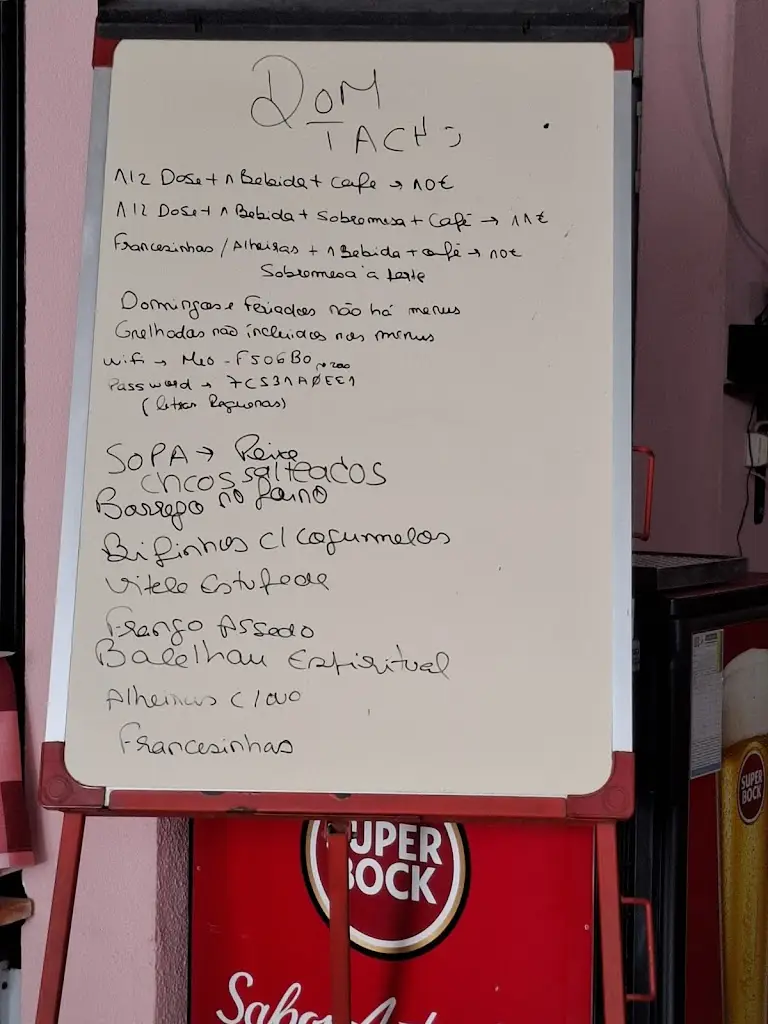 DOM
TACHO
1/2 Dose + 1 Bebida + Café → 10€
1/2 Dose + 1 Bebida + Sobremesa + Café → 11€
Francesinhas / Alheiras + 1 Bebida + café → 10€
Sobremesa à parte
Domingos e Feriados não há menus
Grelhados não incluidos nos menus
Wifi → Meo - F506B0
Password → 7C531A0EE1
(letras Pequenas)
SOPA → Peixe
chcos salteados
Borrego no forno
Bifinhos c/ Cogumelos
Vitela Estufada
Frango Assado
Bacalhau Espiritual
Alheiras c/ ovo
Francesinhas
SUPER
BOCK
SUPER
BOCK
Sabor